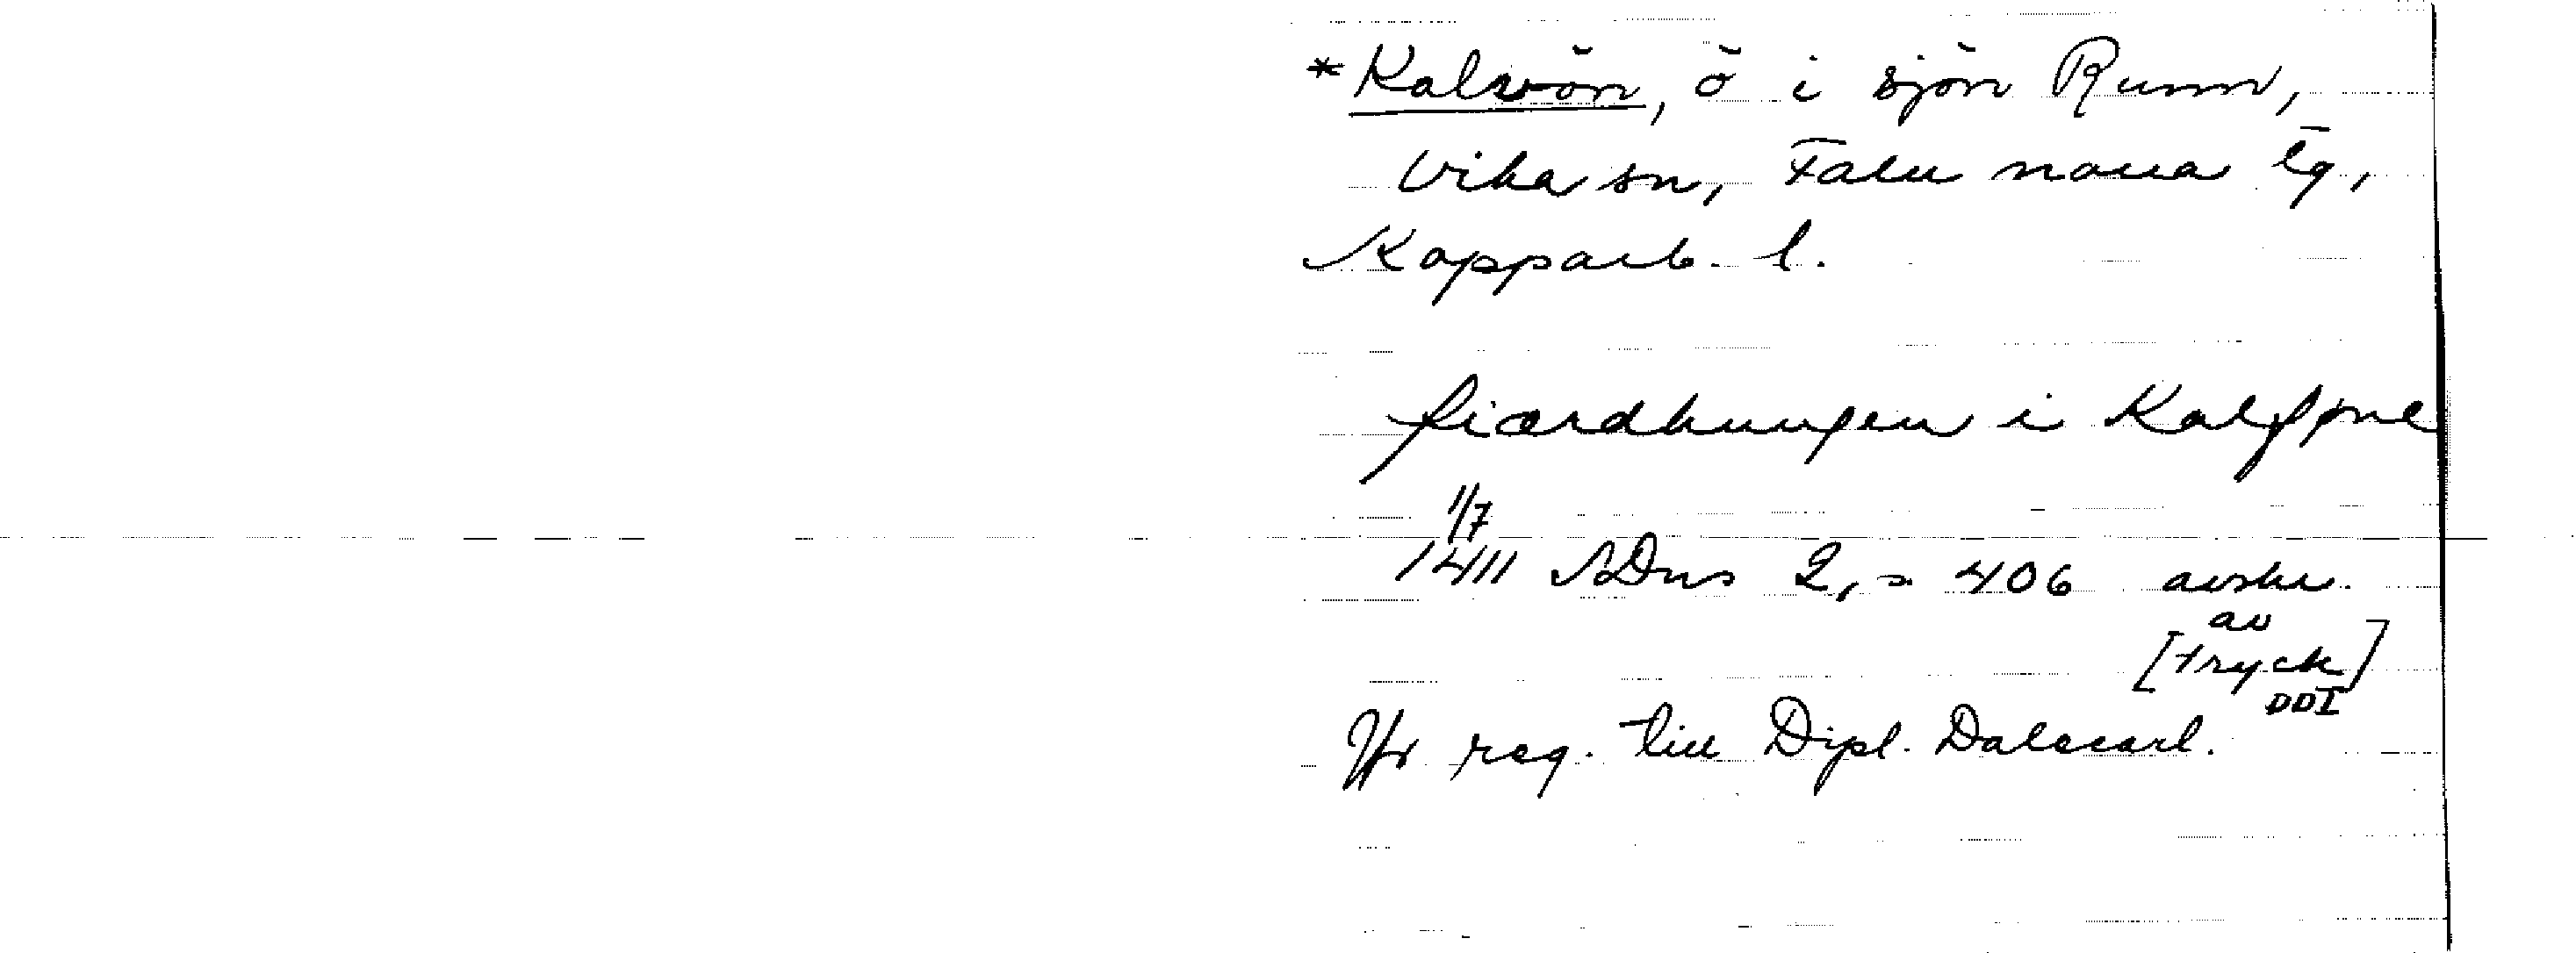 *Kalvön, ö i sjön Runn,
Vika sn, Falu norra tg,
Kopparb. l.
fiærdhungen i Kalføne
1/7
1411 SDns 2, s 406 avskr.
av
[tryck]
DD1
Jfr reg. till Dipl. Dalecarl.